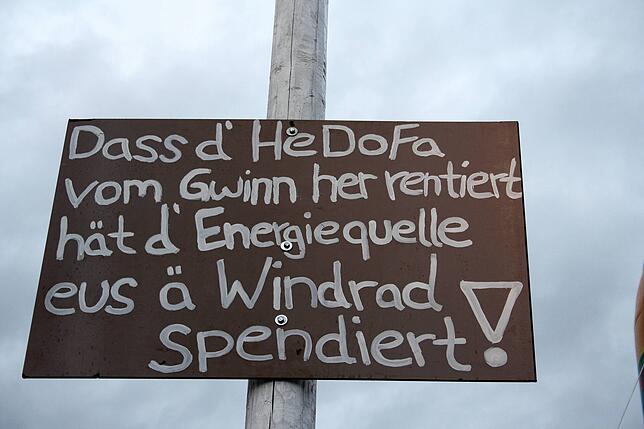 Dass d' HeDoFa
vom Gwinn her rentiert
hät d' Energiequelle
eus ä Windrad
spendiert!